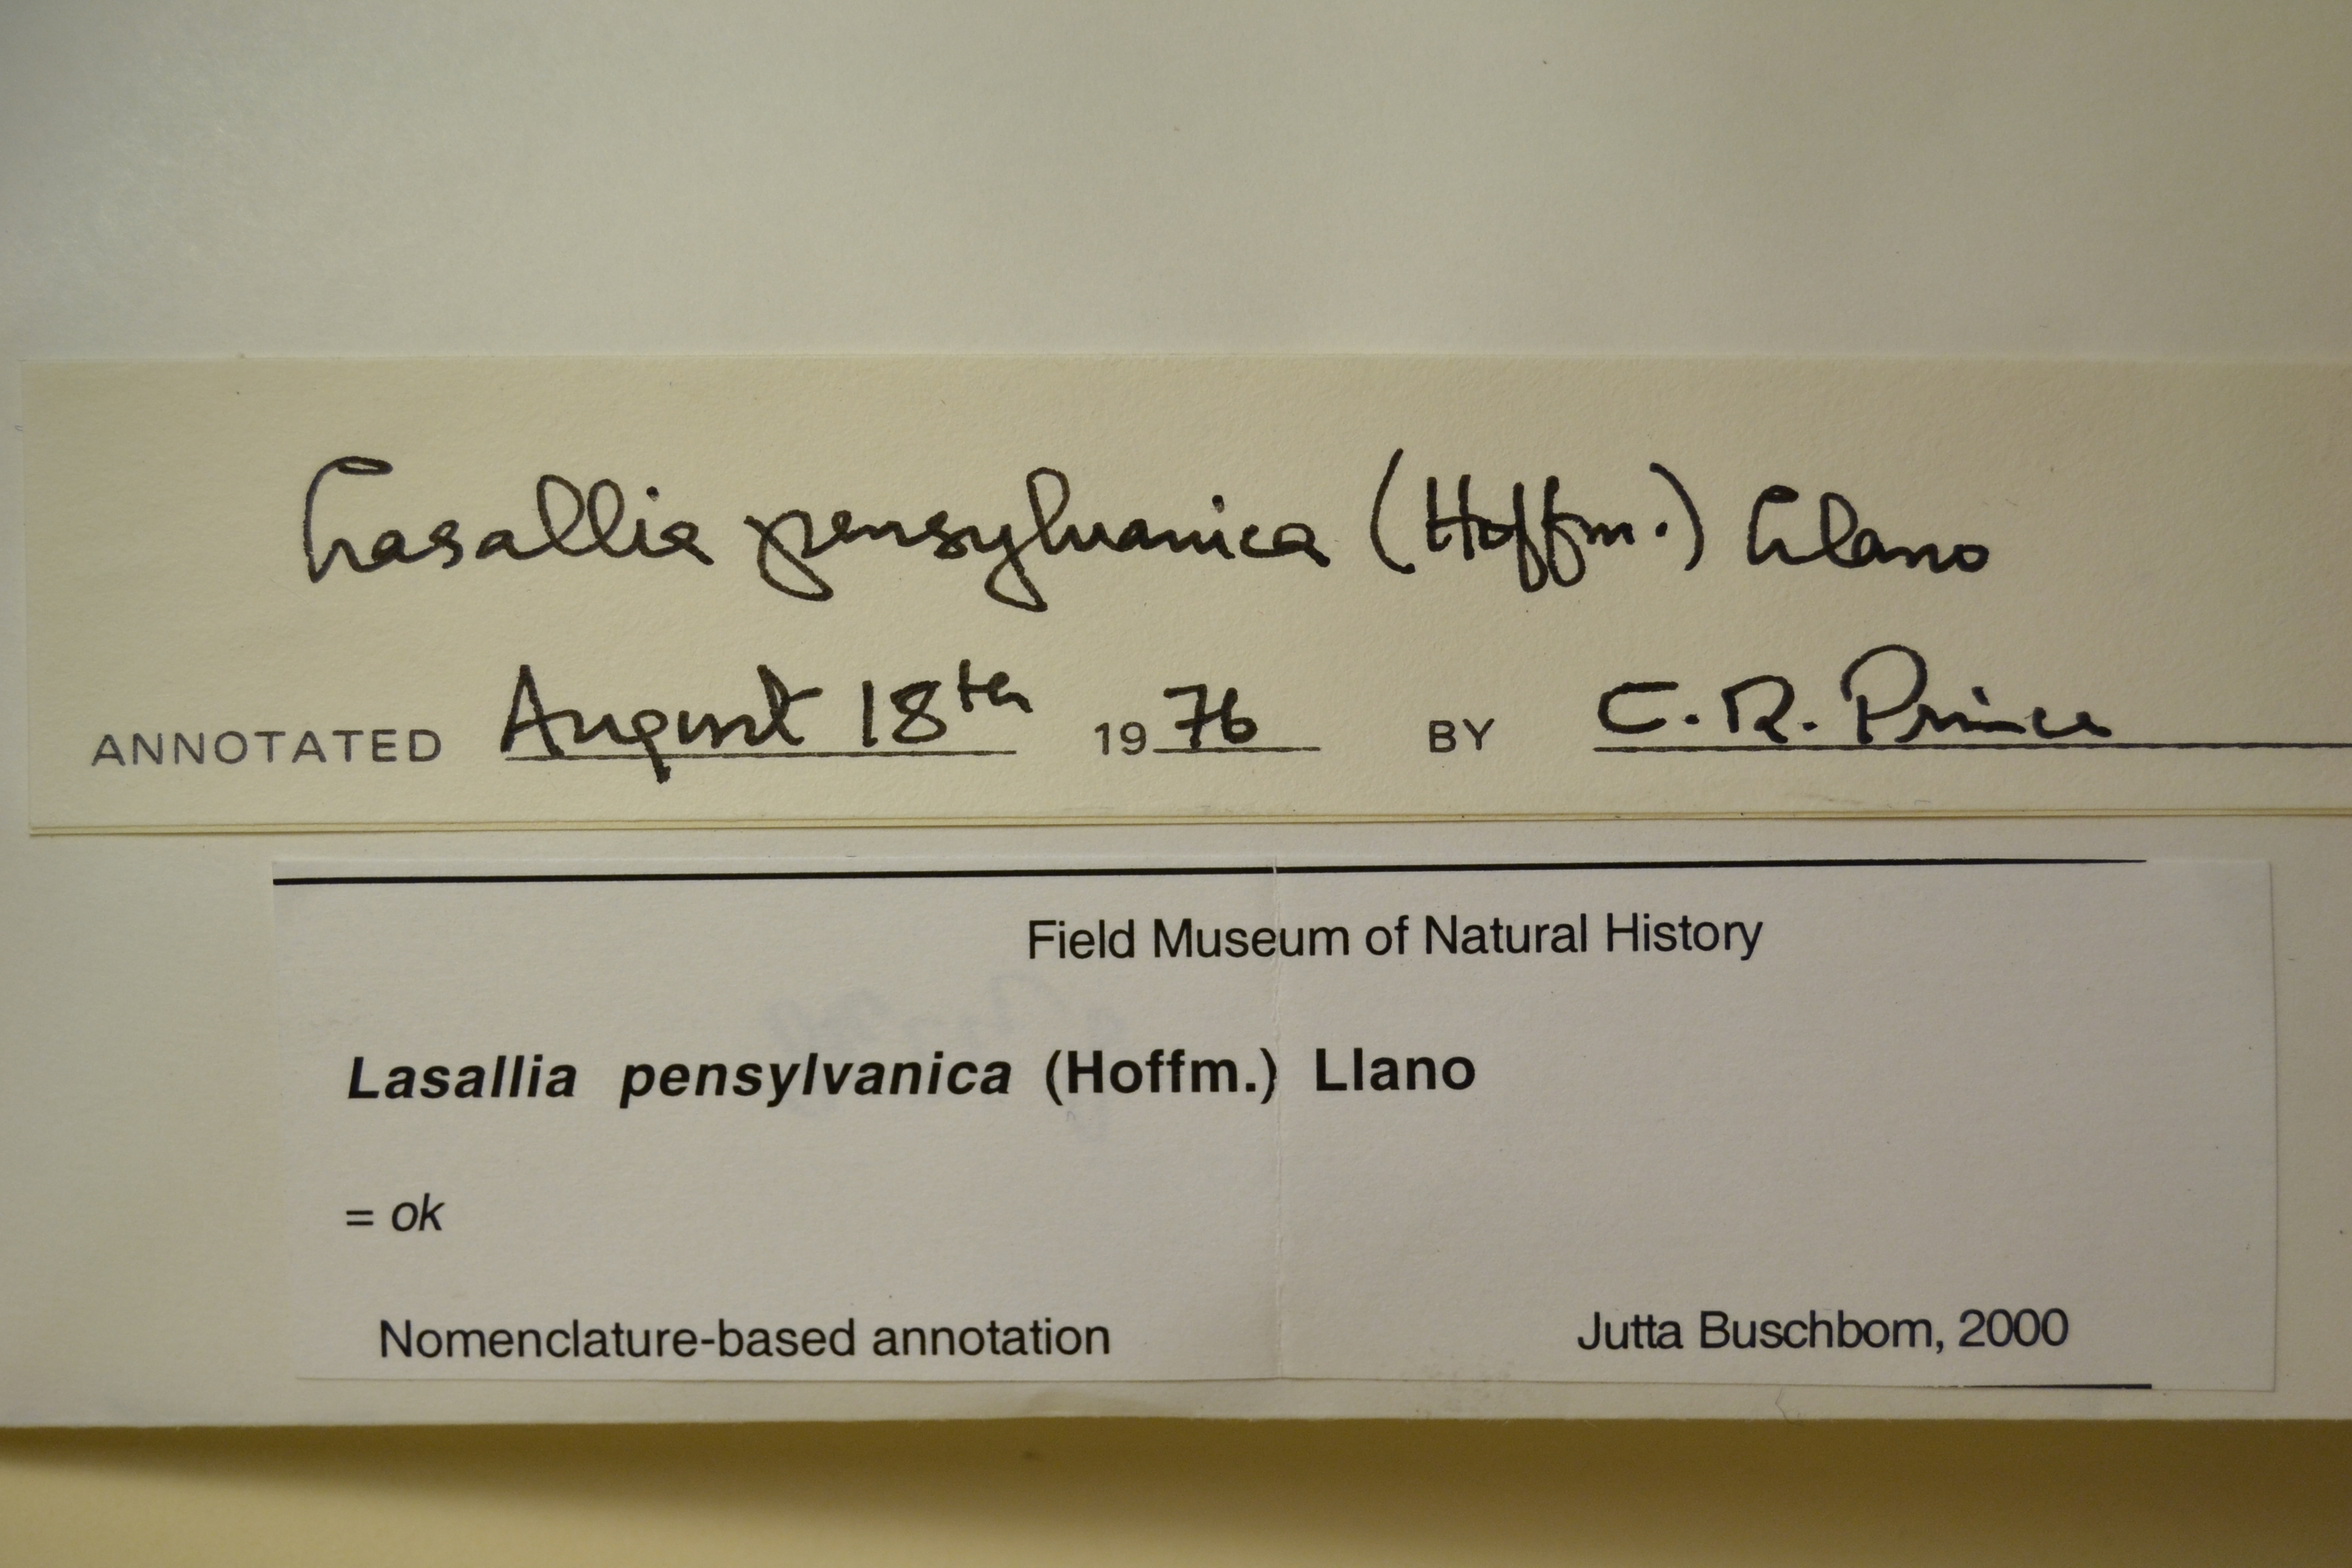 Lasallia pensylvanica (Hoffm.) Llano
ANNOTATED August 18th 1976 BY C. R. Prince
Field Museum of Natural History
Lasallia pensylvanica (Hoffm.) Llano
= ok
Nomenclature-based annotation Jutta Buschbom, 2000